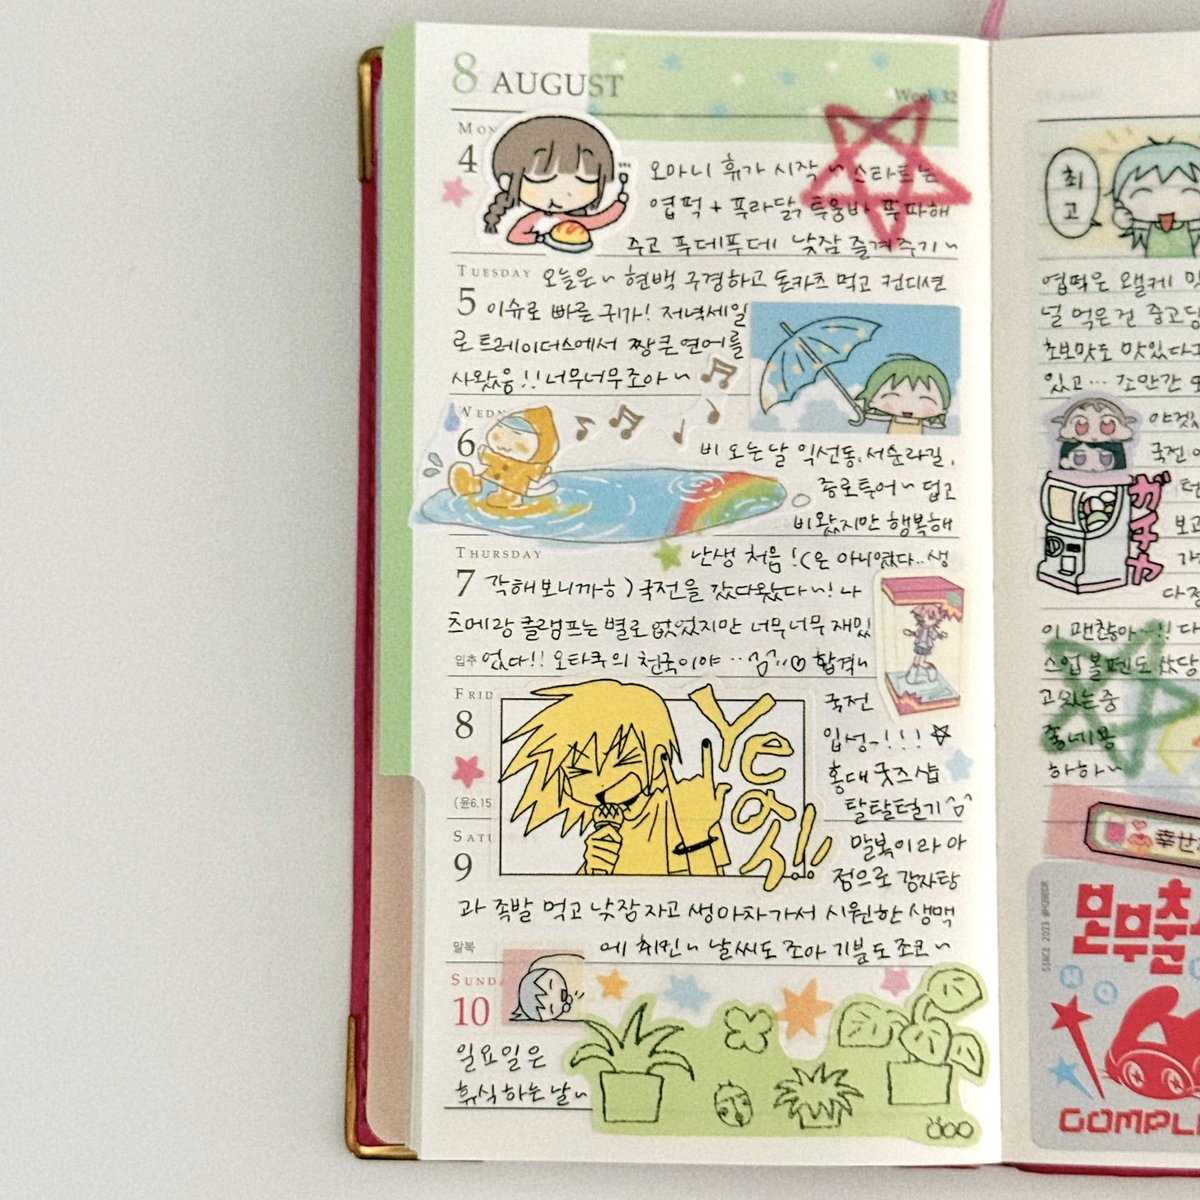 8 AUGUST
Week 32
MON
4
오마니 휴가 시작~ 스타트는
엽떡 + 푸라닭 투움바 뿌파해
주고 푸데푸데 낮잠 즐겨주기~
TUESDAY
5
오늘은~ 현백 구경하고 돈카츠 먹고 컨디션
이슈로 빠른 귀가! 저녁세일
로 트레이더스에서 짱큰 연어를
사왔음!! 너무너무조아~
WEDN
6
비 오는날 익선동, 서순라길,
종로투어~ 덥고
비왔지만 행복해
THURSDAY
7
난생 처음!(은 아니였다.. 생
각해보니까ㅎ) 국전을 갔다왔다~! 나
츠메랑 클램프는 별로 없었지만 너무너무 재밌
입추
었다!! 오타쿠의 천국이야 … 합격~
FRID
8
(윤6.15
국전
입성~!!!☆
홍대 굿즈샵
탈탈털기
Yeah!!
SATU
9
말복
말복이라 아
점으로 감자탕
과 족발 먹고 낮잠자고 생맥
에 치킨~ 날씨도 조아 기분도 조코~
SUNDA
10
일요일은
휴식하는날~
최
고
엽떡은
널 먹은건
초보맛도 맛있다고
있고… 조만간
국전
ガチャ
보고
다정
이 괜찮아…!! 다
스업 볼펜도 샀당
고있는중
좋네용
하하~
幸せ
SINCE 2023
COMPL